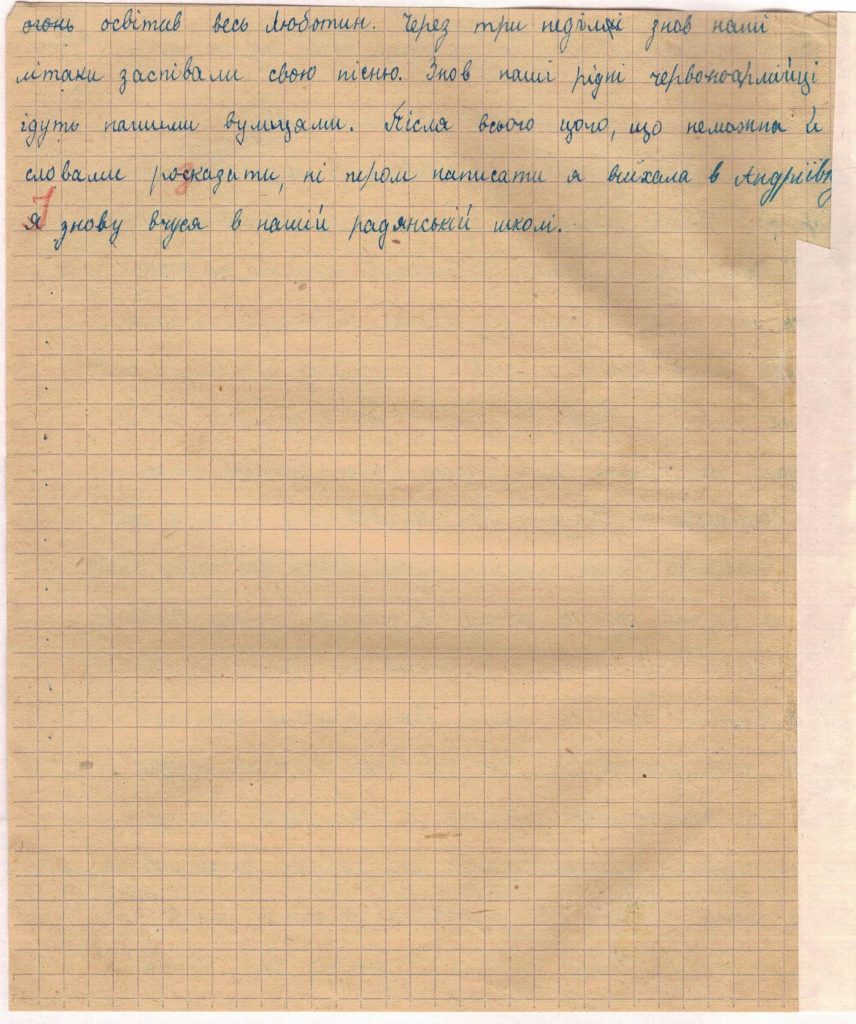 огонь освітив весь Люботин. Через три неділі знов наші
літаки заспівали свою пісню. Знов наші рідні червоноармійці
ідуть нашими вулицями. Після всього цого, що неможна й
словами росказати, ні пером написати я виїхала в Андріївку
я знову вчуся в нашій радянській школі.